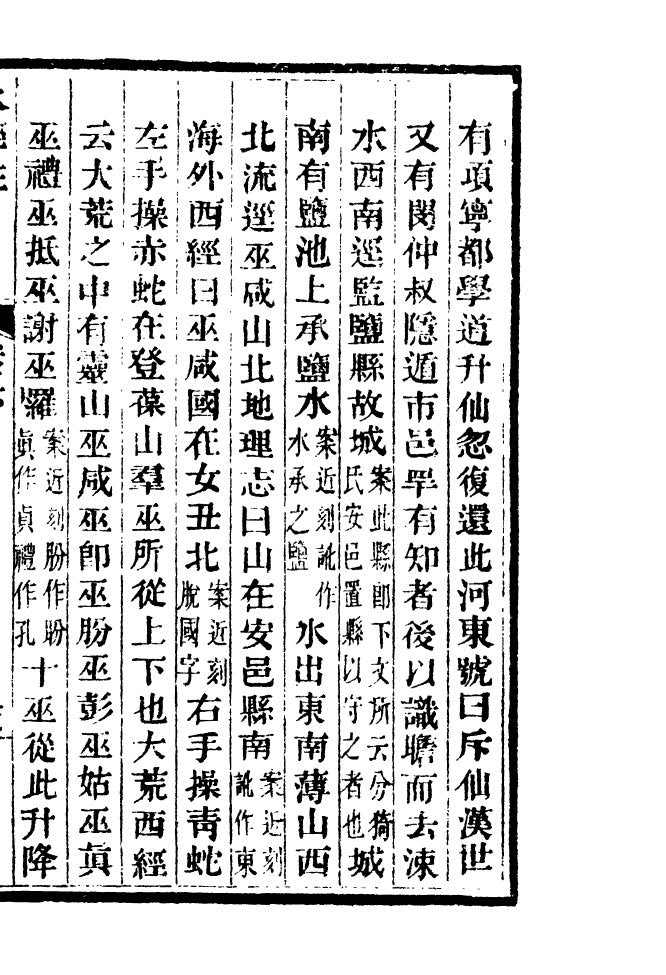 有項寧都學道升仙忽復還此河東號曰斥仙漢世
又有閔仲叔隱遁市邑罕有知者後以識瞻而去涑
水西南逕監鹽縣故城案此縣卽下文所云分猗氏安邑置縣以守之者也城
南有鹽池上承鹽水案近刻訛作水承之鹽水出東南薄山西
北流逕巫咸山北地理志曰山在安邑縣南案近刻訛作東
海外西經曰巫咸國在女丑北案近刻脫國字右手操青蛇
左手操赤蛇在登葆山羣巫所從上下也大荒西經
云大荒之中有靈山巫咸巫卽巫肦巫彭巫姑巫眞
巫禮巫抵巫謝巫羅案近刻肦作盼眞作貞禮作孔十巫從此升降